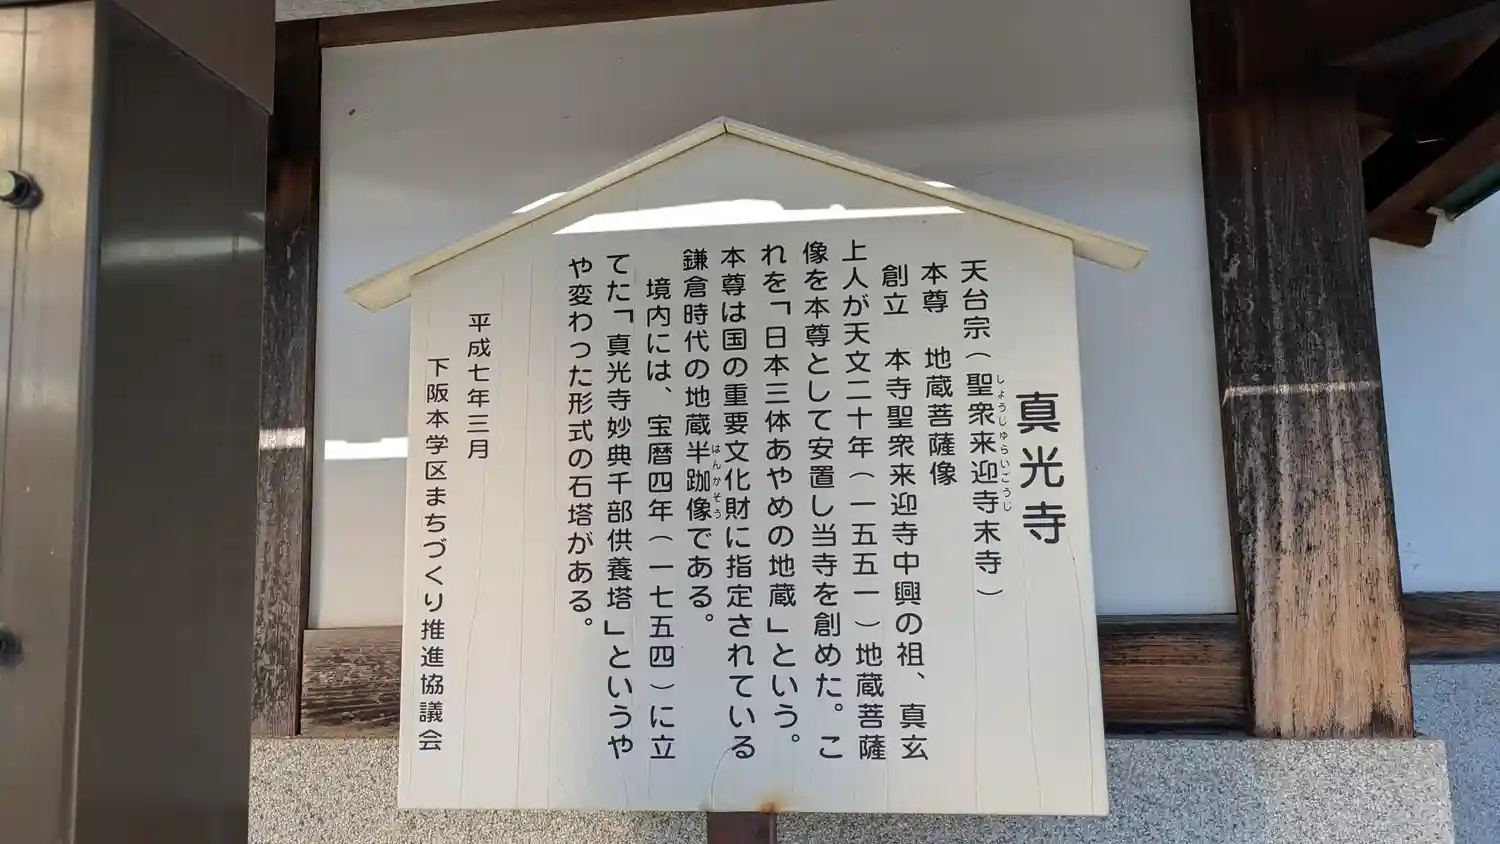 真光寺
天台宗(聖衆来迎寺末寺)
しょうじゅらいごうじ
本尊　地蔵菩薩像
創立　本寺聖衆来迎寺中興の祖、真玄
上人が天文二十年(一五五一)地蔵菩薩
像を本尊として安置し当寺を創めた。こ
れを「日本三体あやめの地蔵」という。
本尊は国の重要文化財に指定されている
鎌倉時代の地蔵半跏像である。
はんかぞう
境内には、宝暦四年(一七五四)に立
てた「真光寺妙典千部供養塔」というや
や変わった形式の石塔がある。
平成七年三月
下阪本学区まちづくり推進協議会